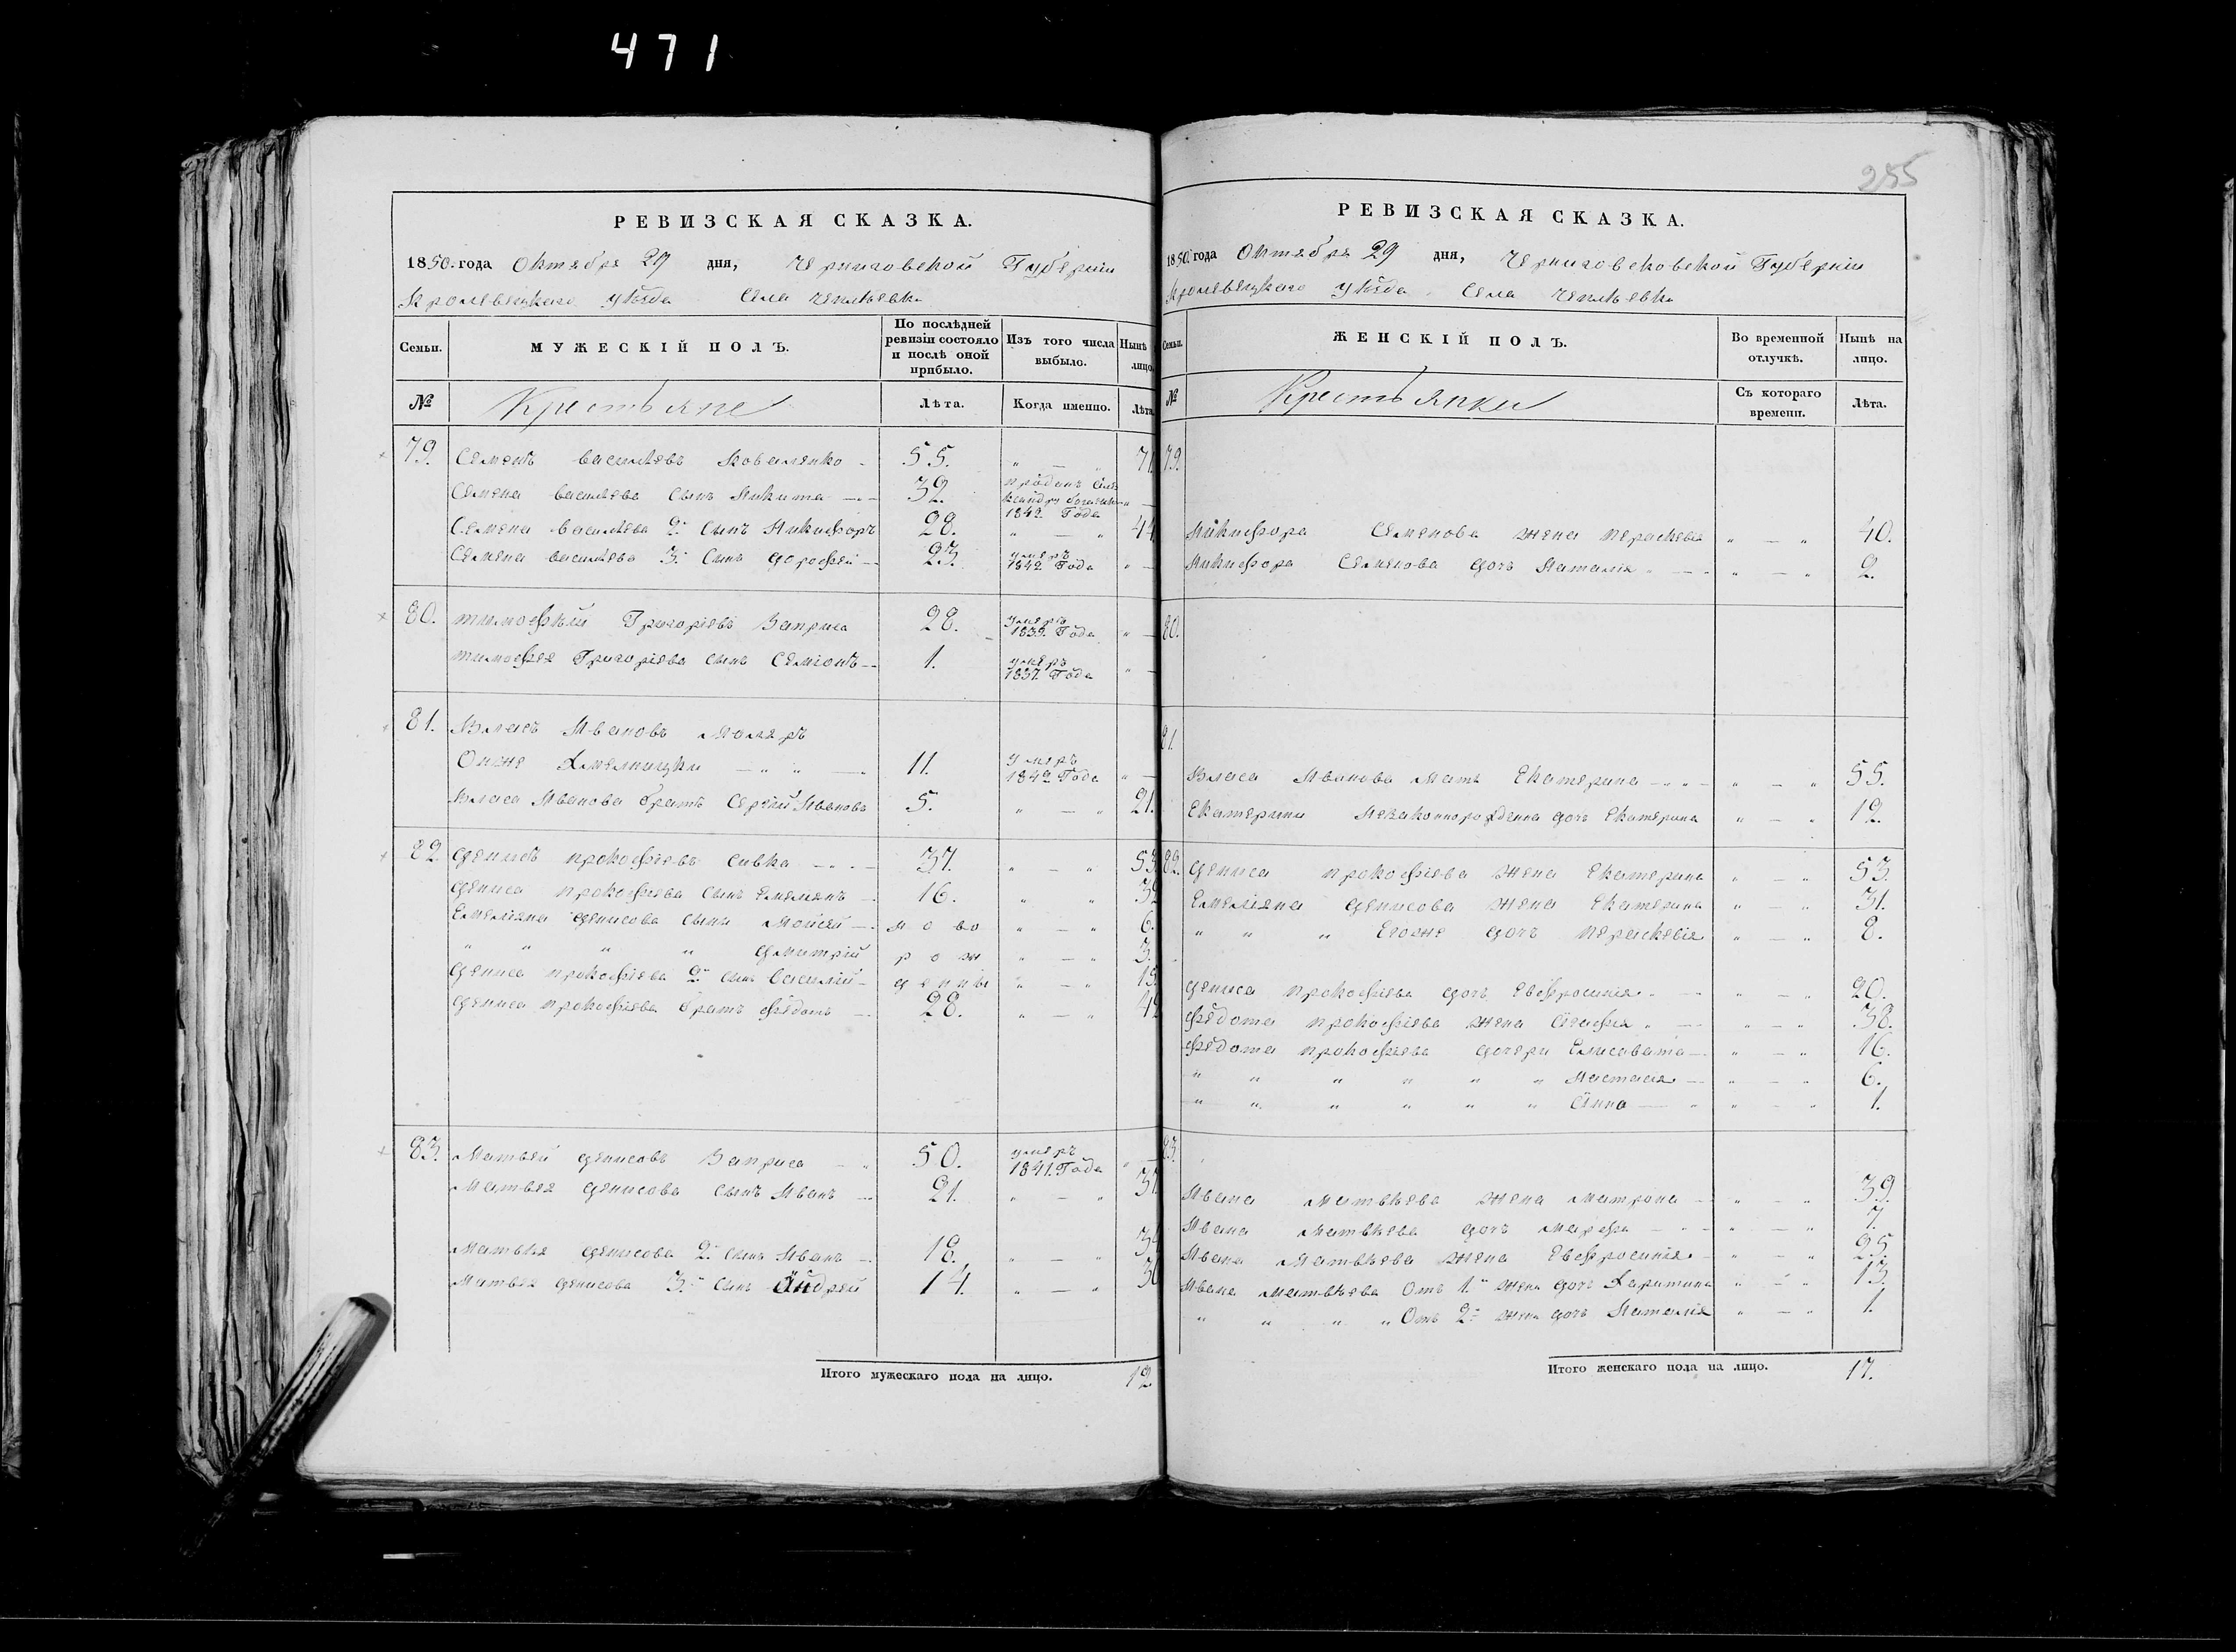 471
РЕВИЗСКАЯ СКАЗКА.
1850. года Октября 29 дня, Черниговской Губерніи
Кролевецкаго уѣзда Села Чепліевки
Семьи. МУЖЕСКІЙ ПОЛЪ. По послѣдней ревизіи состояло и послѣ оной прибыло. Изъ того числа выбыло. Нынѣ лицо.
№ Крестьяне Лѣта. Когда именно. Лѣта
79. Семенъ Василіевъ Коваленко 55. " — " 71
Семена Василіева сынъ Никита 32. проданъ 1842 Года " —
Семена Василіева 2й сынъ Никифоръ 28. " — " 44
Семена Василіева 3й сынъ Дорофей 23. умеръ 1842 Года " —
80. Тимофѣй Григоріевъ Заприса 28. умеръ 1839. Года " —
Тимофея Григоріева сынъ Семіонъ 1. умеръ 1837. Года " —
81. Власъ Ивановъ Моляръ
Онже Хмелницки — " " — 11. умеръ 1840 Года " —
Власа Иванова братъ Сергій Ивановъ 5. " — " 21.
82. Денисъ Прокофіевъ Сивка 37. " — " 53
Дениса Прокофіева сынъ Емеліянъ 16. " " 32
Емеліяна Денисова сыны Мойсей ново " — " 6.
" " " " Дмитрій рож " — " 3.
Дениса Прокофіева 2й сынъ Василій денны " — " 13
Дениса Прокофіева братъ Федотъ 28. " — " 42
83. Матвей Денисовъ Заприса 50. умеръ 1841. Года " —
Матвея Денисова сынъ Иванъ 21. " — " 37
Матвея Денисова 2й сынъ Иванъ 18. " — " 34
Матвея Денисова 3й сынъ Андрей 14. " — " 30
Итого мужескаго пола на лицо. 12
255
РЕВИЗСКАЯ СКАЗКА.
1850. года Октября 29 дня, Черниговсковской Губерніи
Кролевецкаго уѣзда Села Чепліевки
Семьи. ЖЕНСКІЙ ПОЛЪ. Во временной отлучкѣ. Нынѣ на лицо.
№ Крестьянки Съ котораго времени. Лѣта.
79.
Никифора Семенова жена Пераскевія " — " 40.
Никифора Семенова дочь Наталія " — " 2.
80.
81.
Власа Иванова мать Екатерина " — " 55.
Екатерины Незаконнорожденна дочь Екатерина " — " 12.
82. Дениса Прокофіева жена Екатерина " — " 53.
Емеліяна Денисова жена Екатерина " — " 31.
" " " Егоже дочь Пераскевія " — " 8.
Дениса Прокофіева дочь Евфросинія " — " 20.
Федота Прокофіева жена Агафія " — " 38.
Федота Прокофіева дочери Елисавета " — " 16.
" " " " " " Настасія " — " 6.
" " " " " " Анна " — " 1.
83.
Ивана Матвѣева жена Матрона " — " 39.
Ивана Матвѣева дочь Марфа " — " 7.
Ивана Матвѣева жена Евфросинія 25.
Ивана Матвѣева Отъ 1й жены дочь Харитина " — " 13.
" " " " Отъ 2й жены дочь Наталія " — " 1.
Итого женскаго пола на лицо. 17.